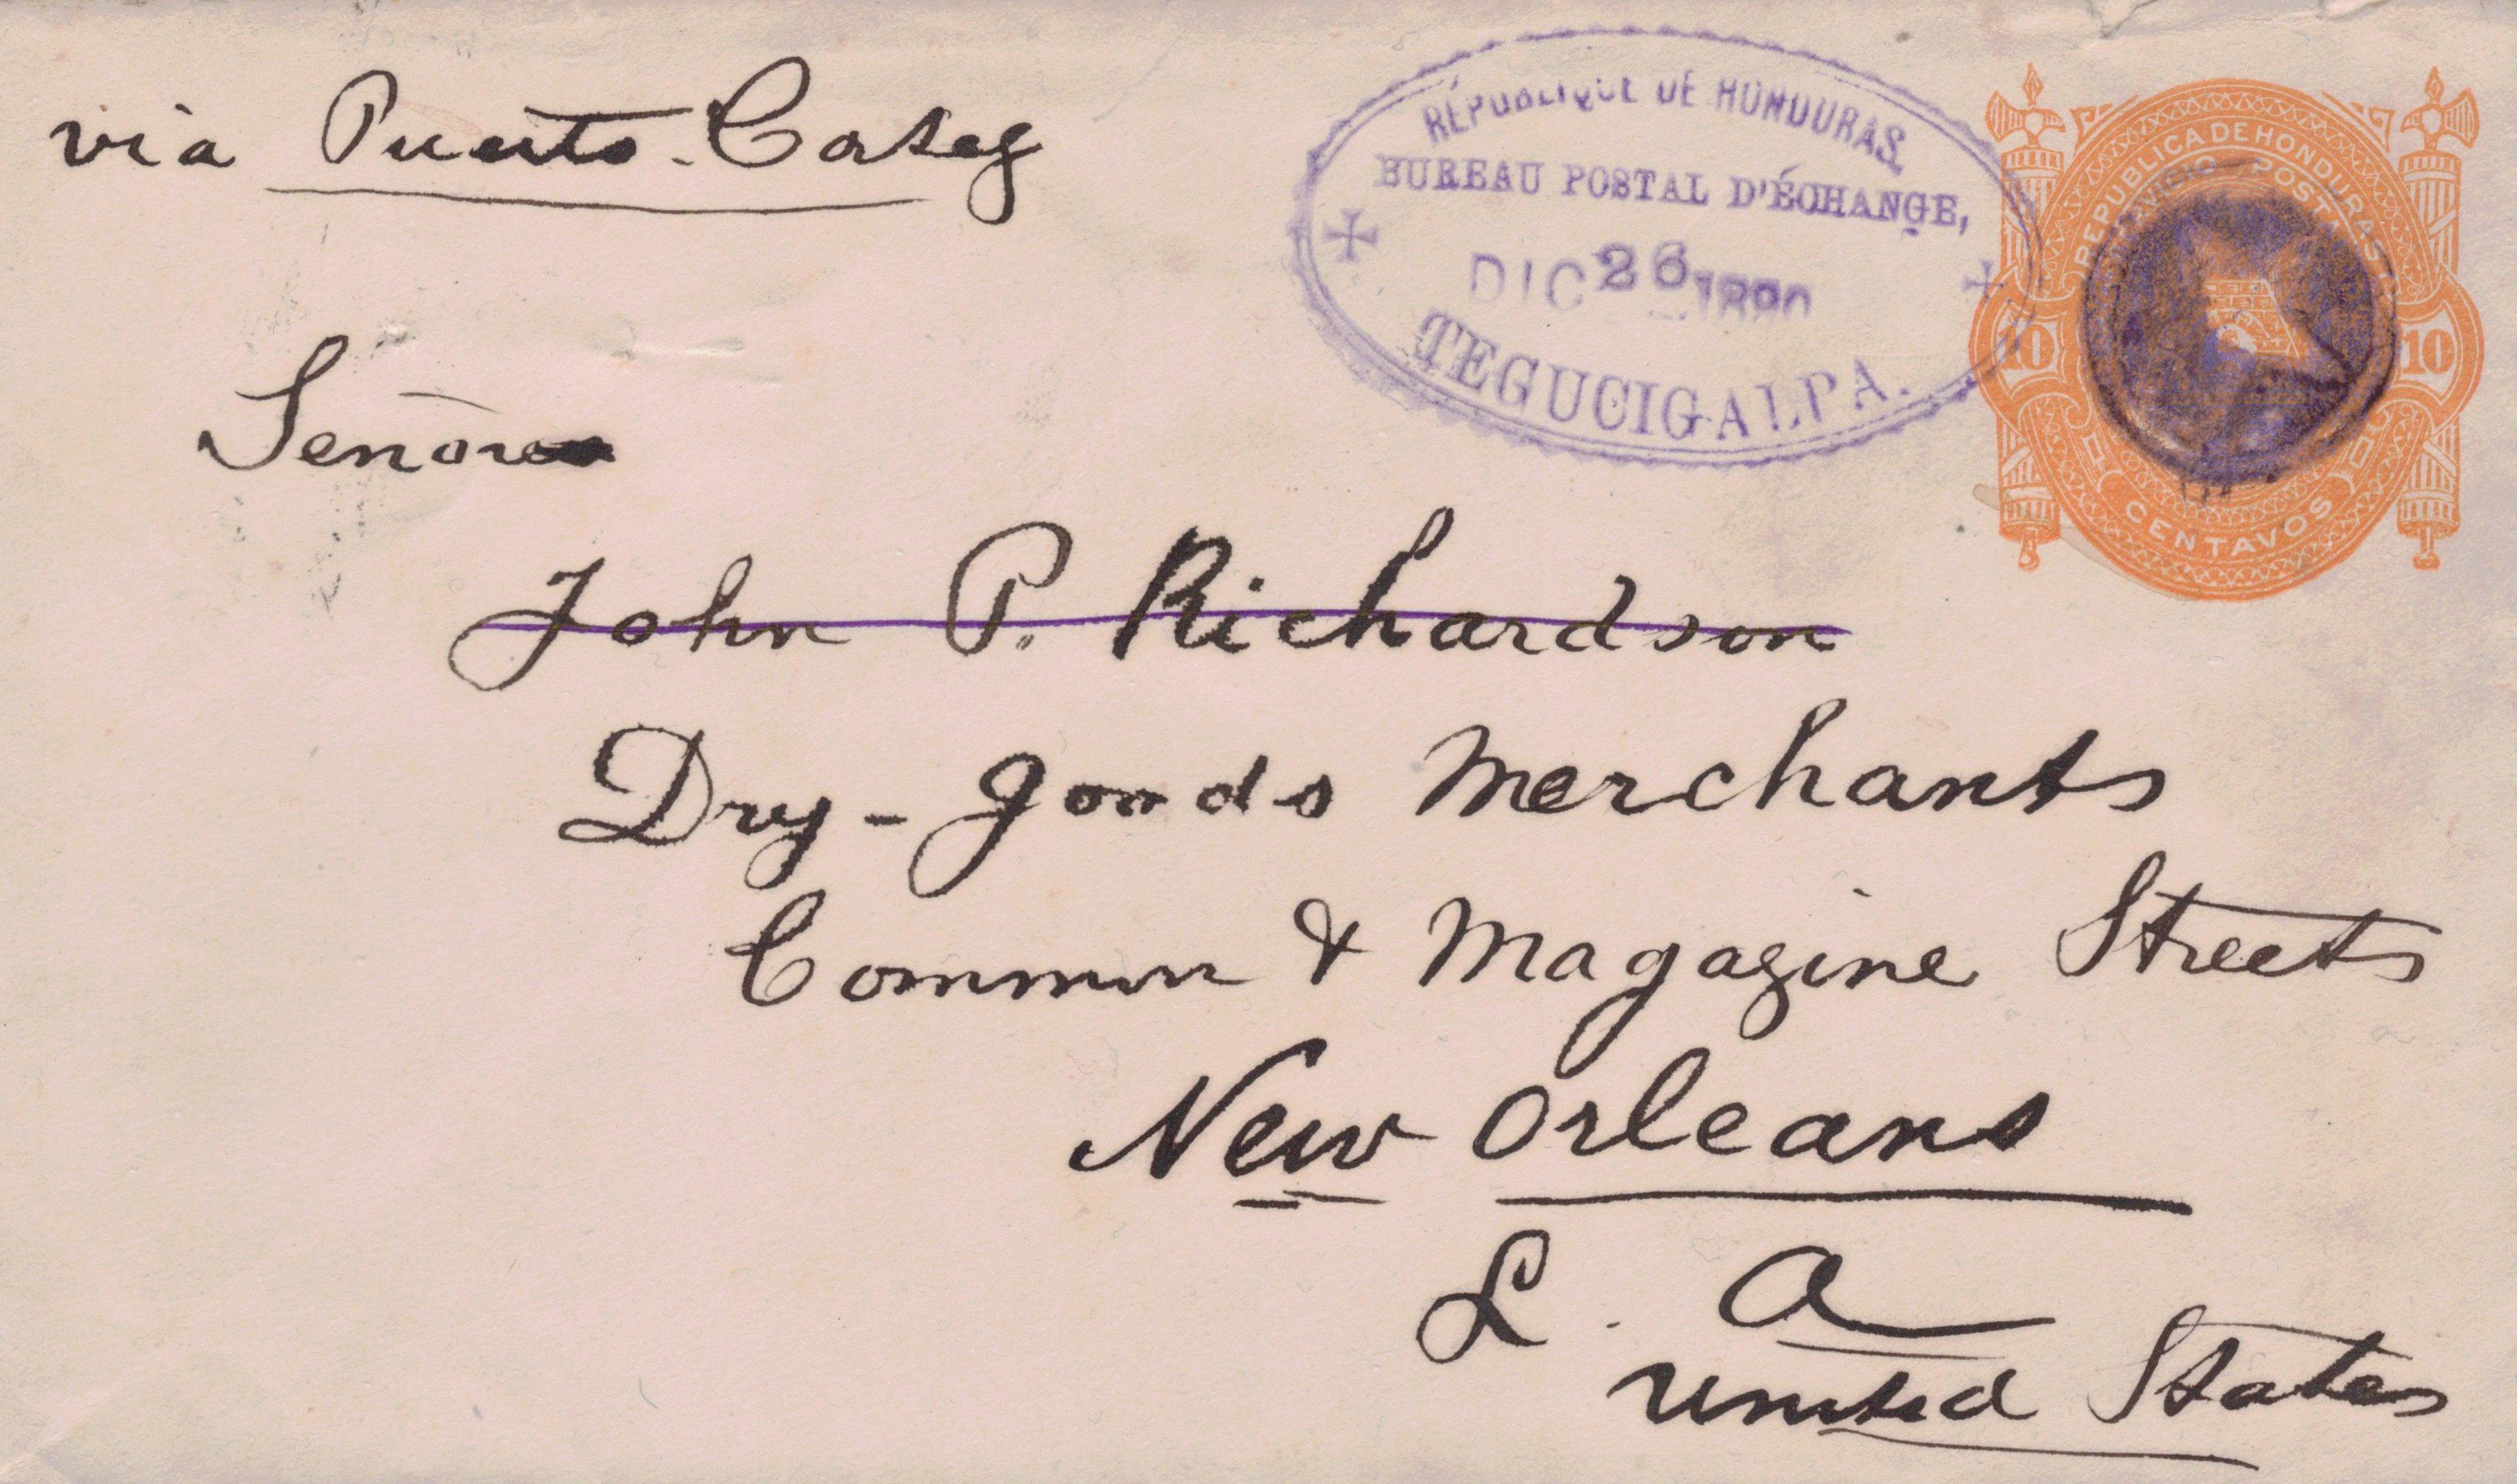 via Puerto-Cortez
RÉPUBLIQUE DE HONDURAS.
BUREAU POSTAL D'ÉCHANGE,
DIC 26 1890
TEGUCIGALPA.
REPUBLICA DE HONDURAS
SERVICIO POSTAL
10 10
CENTAVOS
Señor
John P. Richardson
Dry-goods Merchants
Common & Magazine Streets
New Orleans
L. a
United States